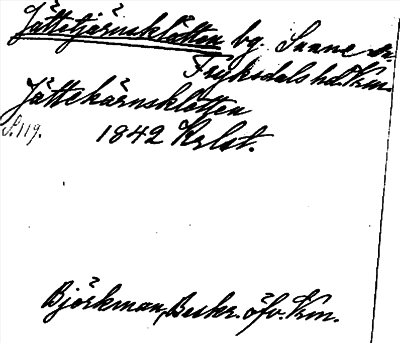 Jättetjärnsklätten bg. Sunne sn.
Fryksdals hd. Vrm.
Jättekärnskletten
S. 119. 1842 Krlst.
Björkman, Beskr. öfv. Vrm.